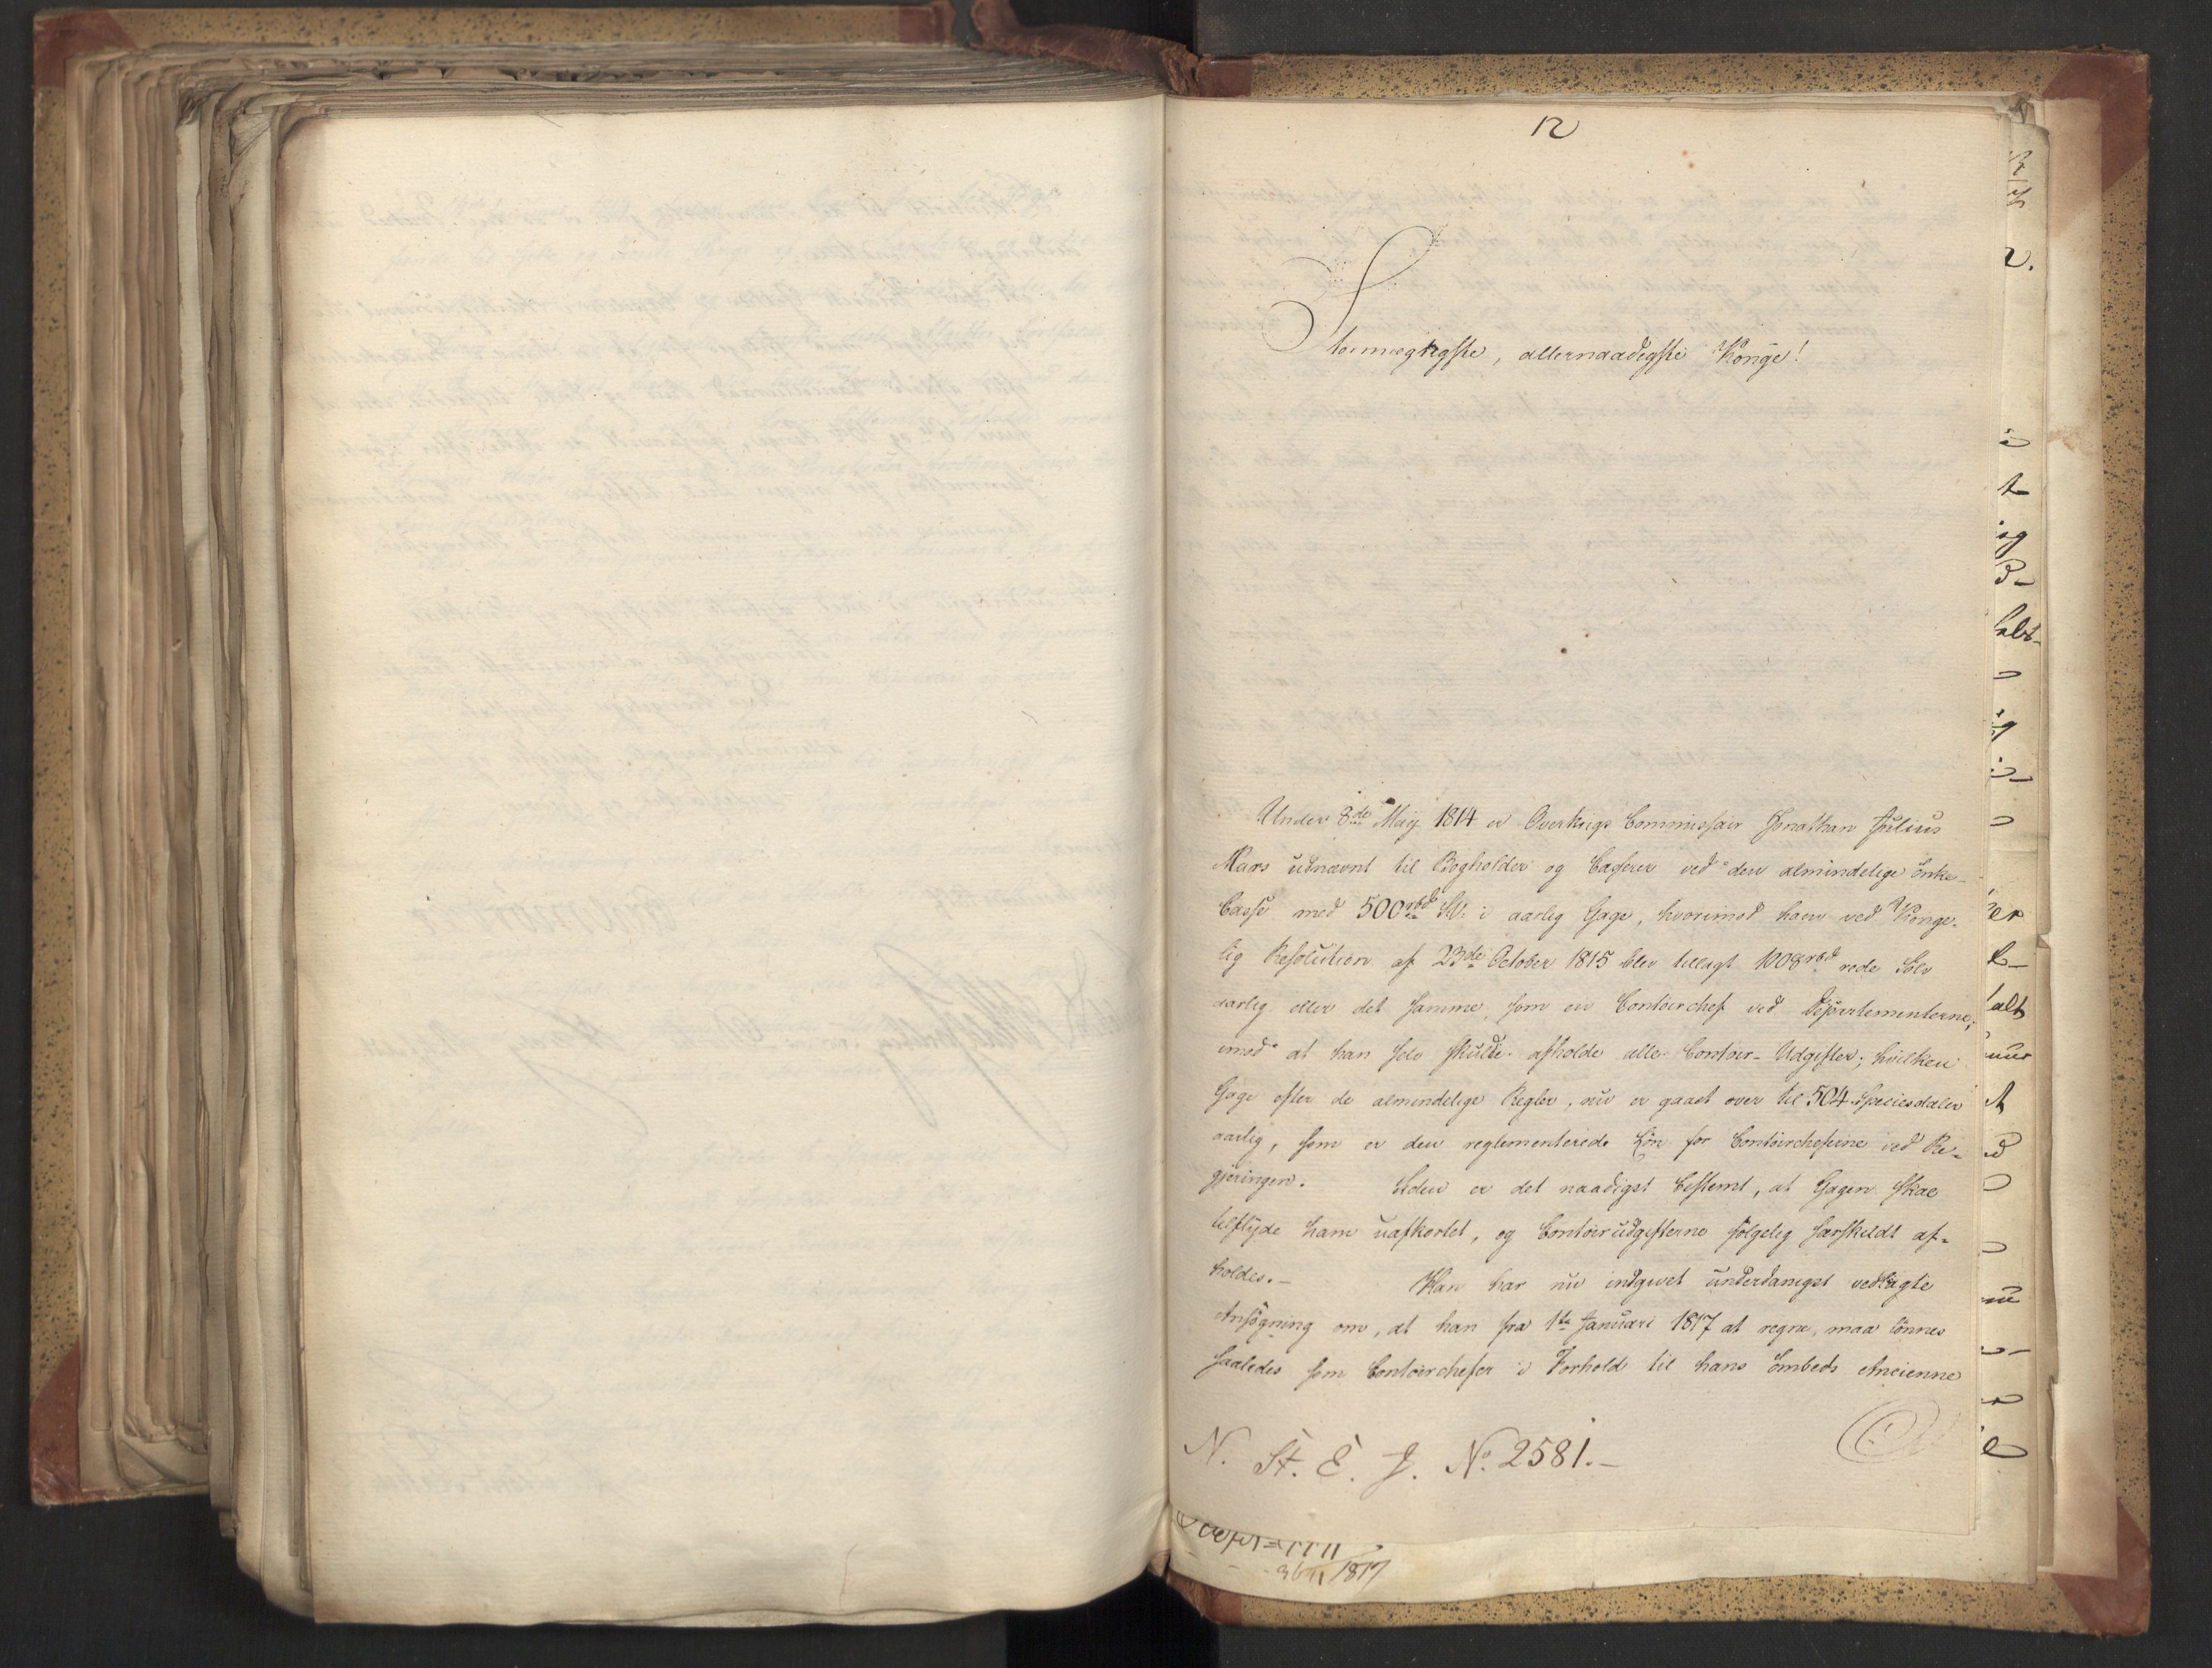 12
Stormægtigste, allernaadigste Konge!
Under 8de Maij 1814 er Overkrigs Commissair Jonathan Julius
Mars udnævnt til Bogholder og Casserer ved den almindelige Enke-
Casse med 500 rbd S.V. i aarlig Gage, hvorimod ham ved Konge-
lig Resolution af 23de October 1815 blev tillagt 1008 rbd rede Sølv
aarlig eller det samme, som en Contoirchef ved Departementerne,
imod at han selv skulde afholde alle Contoir-Udgifter; hvilken
Gage efter de almindelige Regler, nu er gaaet over til 504 Speciesdaler
aarlig, som er den reglementerede Løn for Contoircheferne ved Re-
gjeringen. Siden er det naadigst bestemt, at Gagen skal
tilflyde ham uafkortet, og Contoirudgifterne følgelig særskildt af-
holdes.- Han har nu indgivet underdanigst vedlagte
Ansøgning om, at han fra 1ste Januari 1817 at regne, maa lønnes
saaledes som Contoirchefer i Forhold til hans Embeds Ancienne
N. St. E. J. No. 2581.-
1817